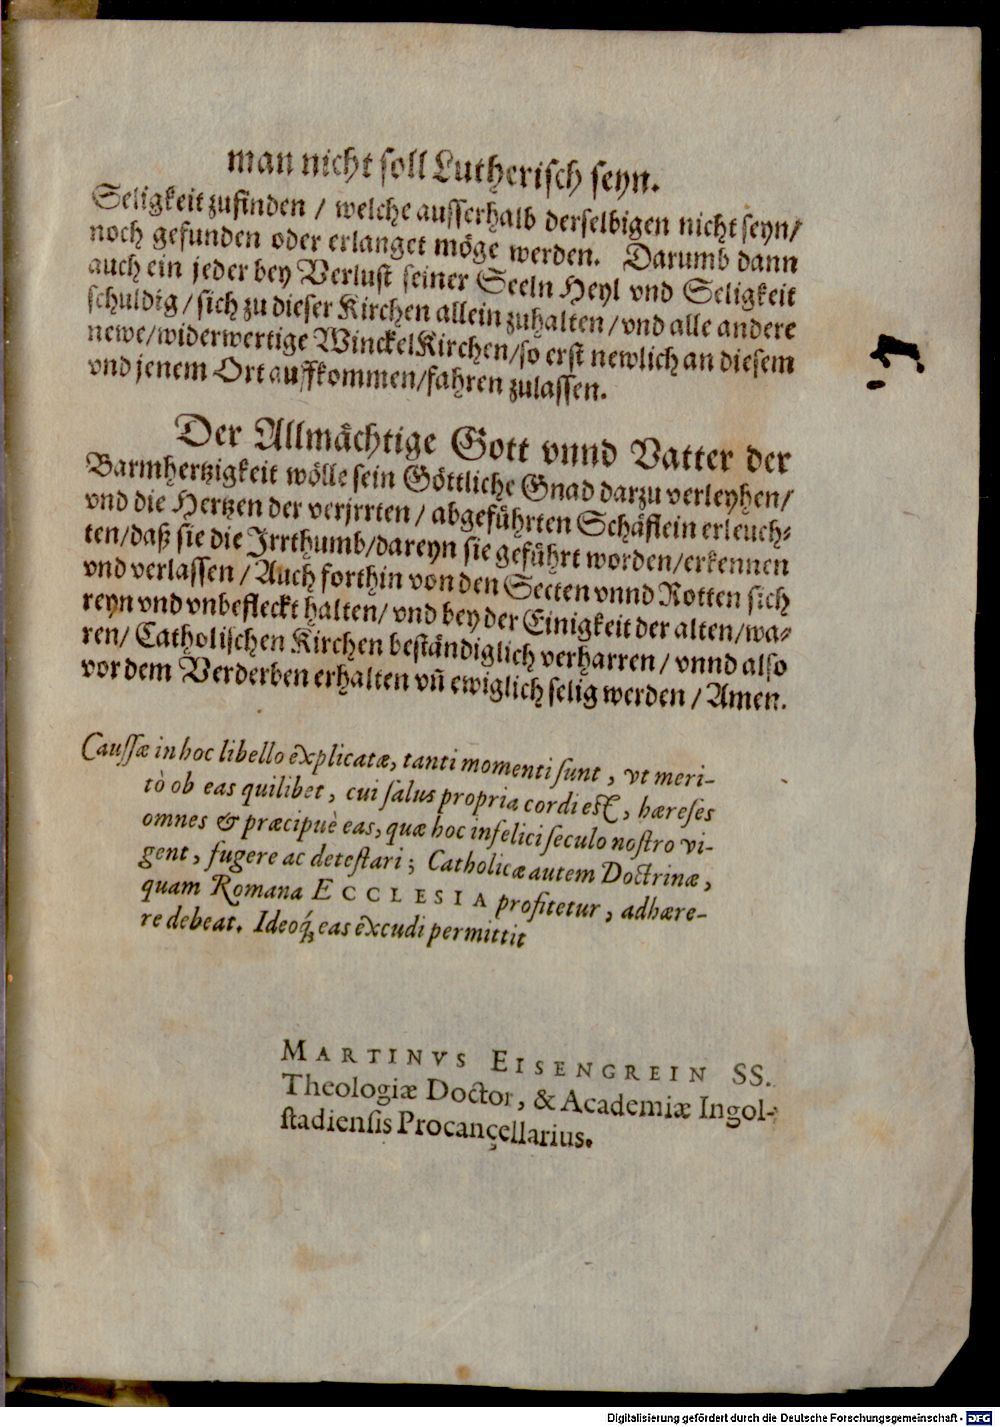 man nicht soll Lutherisch seyn.
Seligkeit zufinden / welche ausserhalb derselbigen nicht seyn/
noch gefunden oder erlanget möge werden. Darumb dann
auch ein jeder bey Verlust seiner Seeln Heyl vnd Seligkeit
schuldig / sich zu dieser Kirchen allein zuhalten / vnd alle andere
newe/widerwertige WinckelKirchen/so erst newlich an diesem
vnd jenem Ort auffkommen/fahren zulassen.
Der Allmächtige Gott vnnd Vatter der
Barmhertzigkeit wölle sein Göttliche Gnad darzu verleyhen/
vnd die Hertzen der verjrrten / abgeführten Schäflein erleuch-
ten/daß sie die Jrrthumb/dareyn sie geführt worden/erkennen
vnd verlassen / Auch forthin von den Secten vnnd Rotten sich
reyn vnd vnbefleckt halten/ vnd bey der Einigkeit der alten/wa-
ren/ Catholischen Kirchen beständiglich verharren / vnnd also
vor dem Verderben erhalten vñ ewiglich selig werden / Amen.
Caussæ in hoc libello explicatæ, tanti momenti sunt, vt meri-
tò ob eas quilibet, cui salus propria cordi est, hæreses
omnes & præcipuè eas, quæ hoc infelici seculo nostro vi-
gent, fugere ac detestari; Catholicæ autem Doctrinæ,
quam Romana ECCLESIA profitetur, adhære-
re debeat. Ideoq́; eas excudi permittit
MARTINVS EISENGREIN SS.
Theologiæ Doctor, & Academiæ Ingol-
stadiensis Procançellarius.
Digitalisierung gefördert durch die Deutsche Forschungsgemeinschaft - DFG